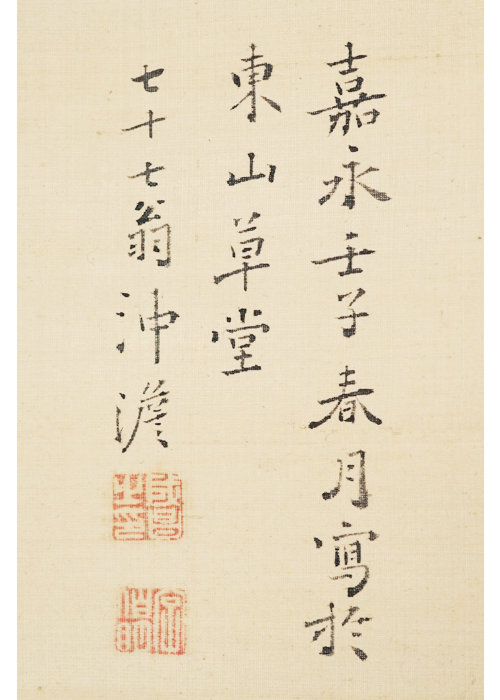 嘉永壬子春月寫於
東山草堂
七十七翁沖澹